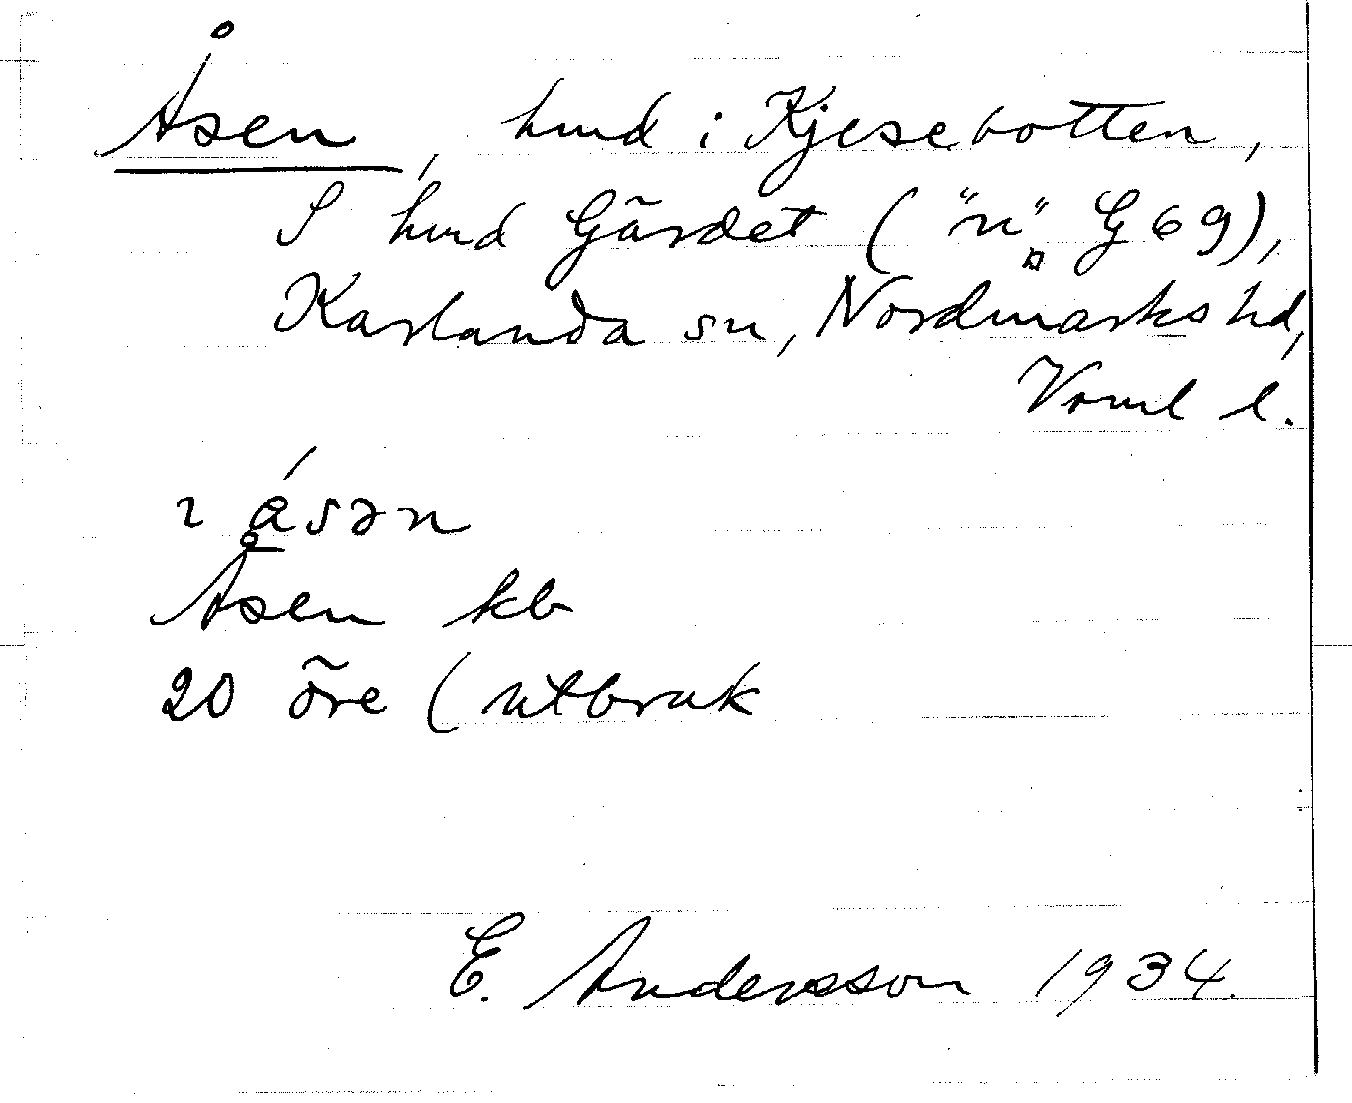 Åsen, hmd i Kjesebotten,
S hmd Gärdet ("n" G 69),
Karlanda sn, Nordmarks hd,
Vrml l.
ɩ åsən
Åsen kb
20 öre (utbruk
E. Andersson 1934.